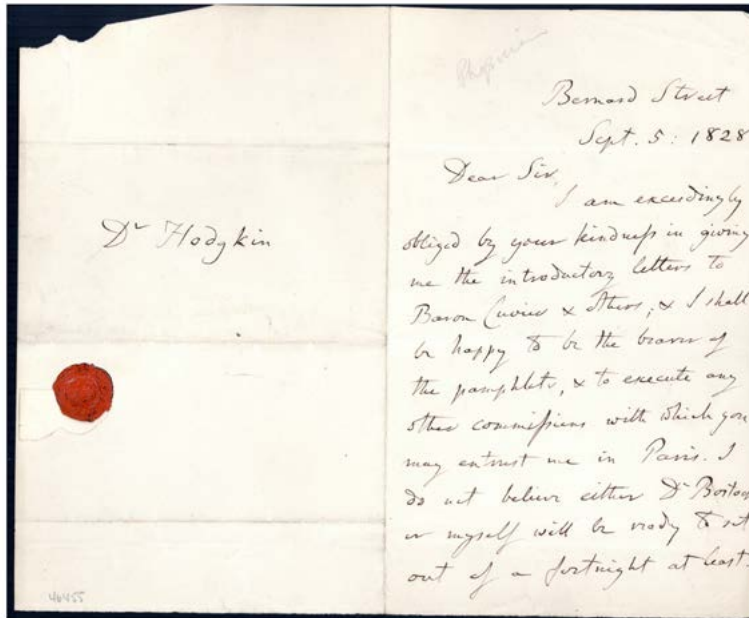 Dr Hodgkin
46455
Physician
Bernard Street
Sept. 5: 1828
Dear Sir,
I am exceedingly
obliged by your kindness in giving
me the introductory letters to
Baron Cuvier & others; & I shall
be happy to be the bearer of
the pamphlets, & to execute any
other commissions with which you
may entrust me in Paris. I
do not believe either Dr Bostock
or myself will be ready to set
out of a fortnight at least.